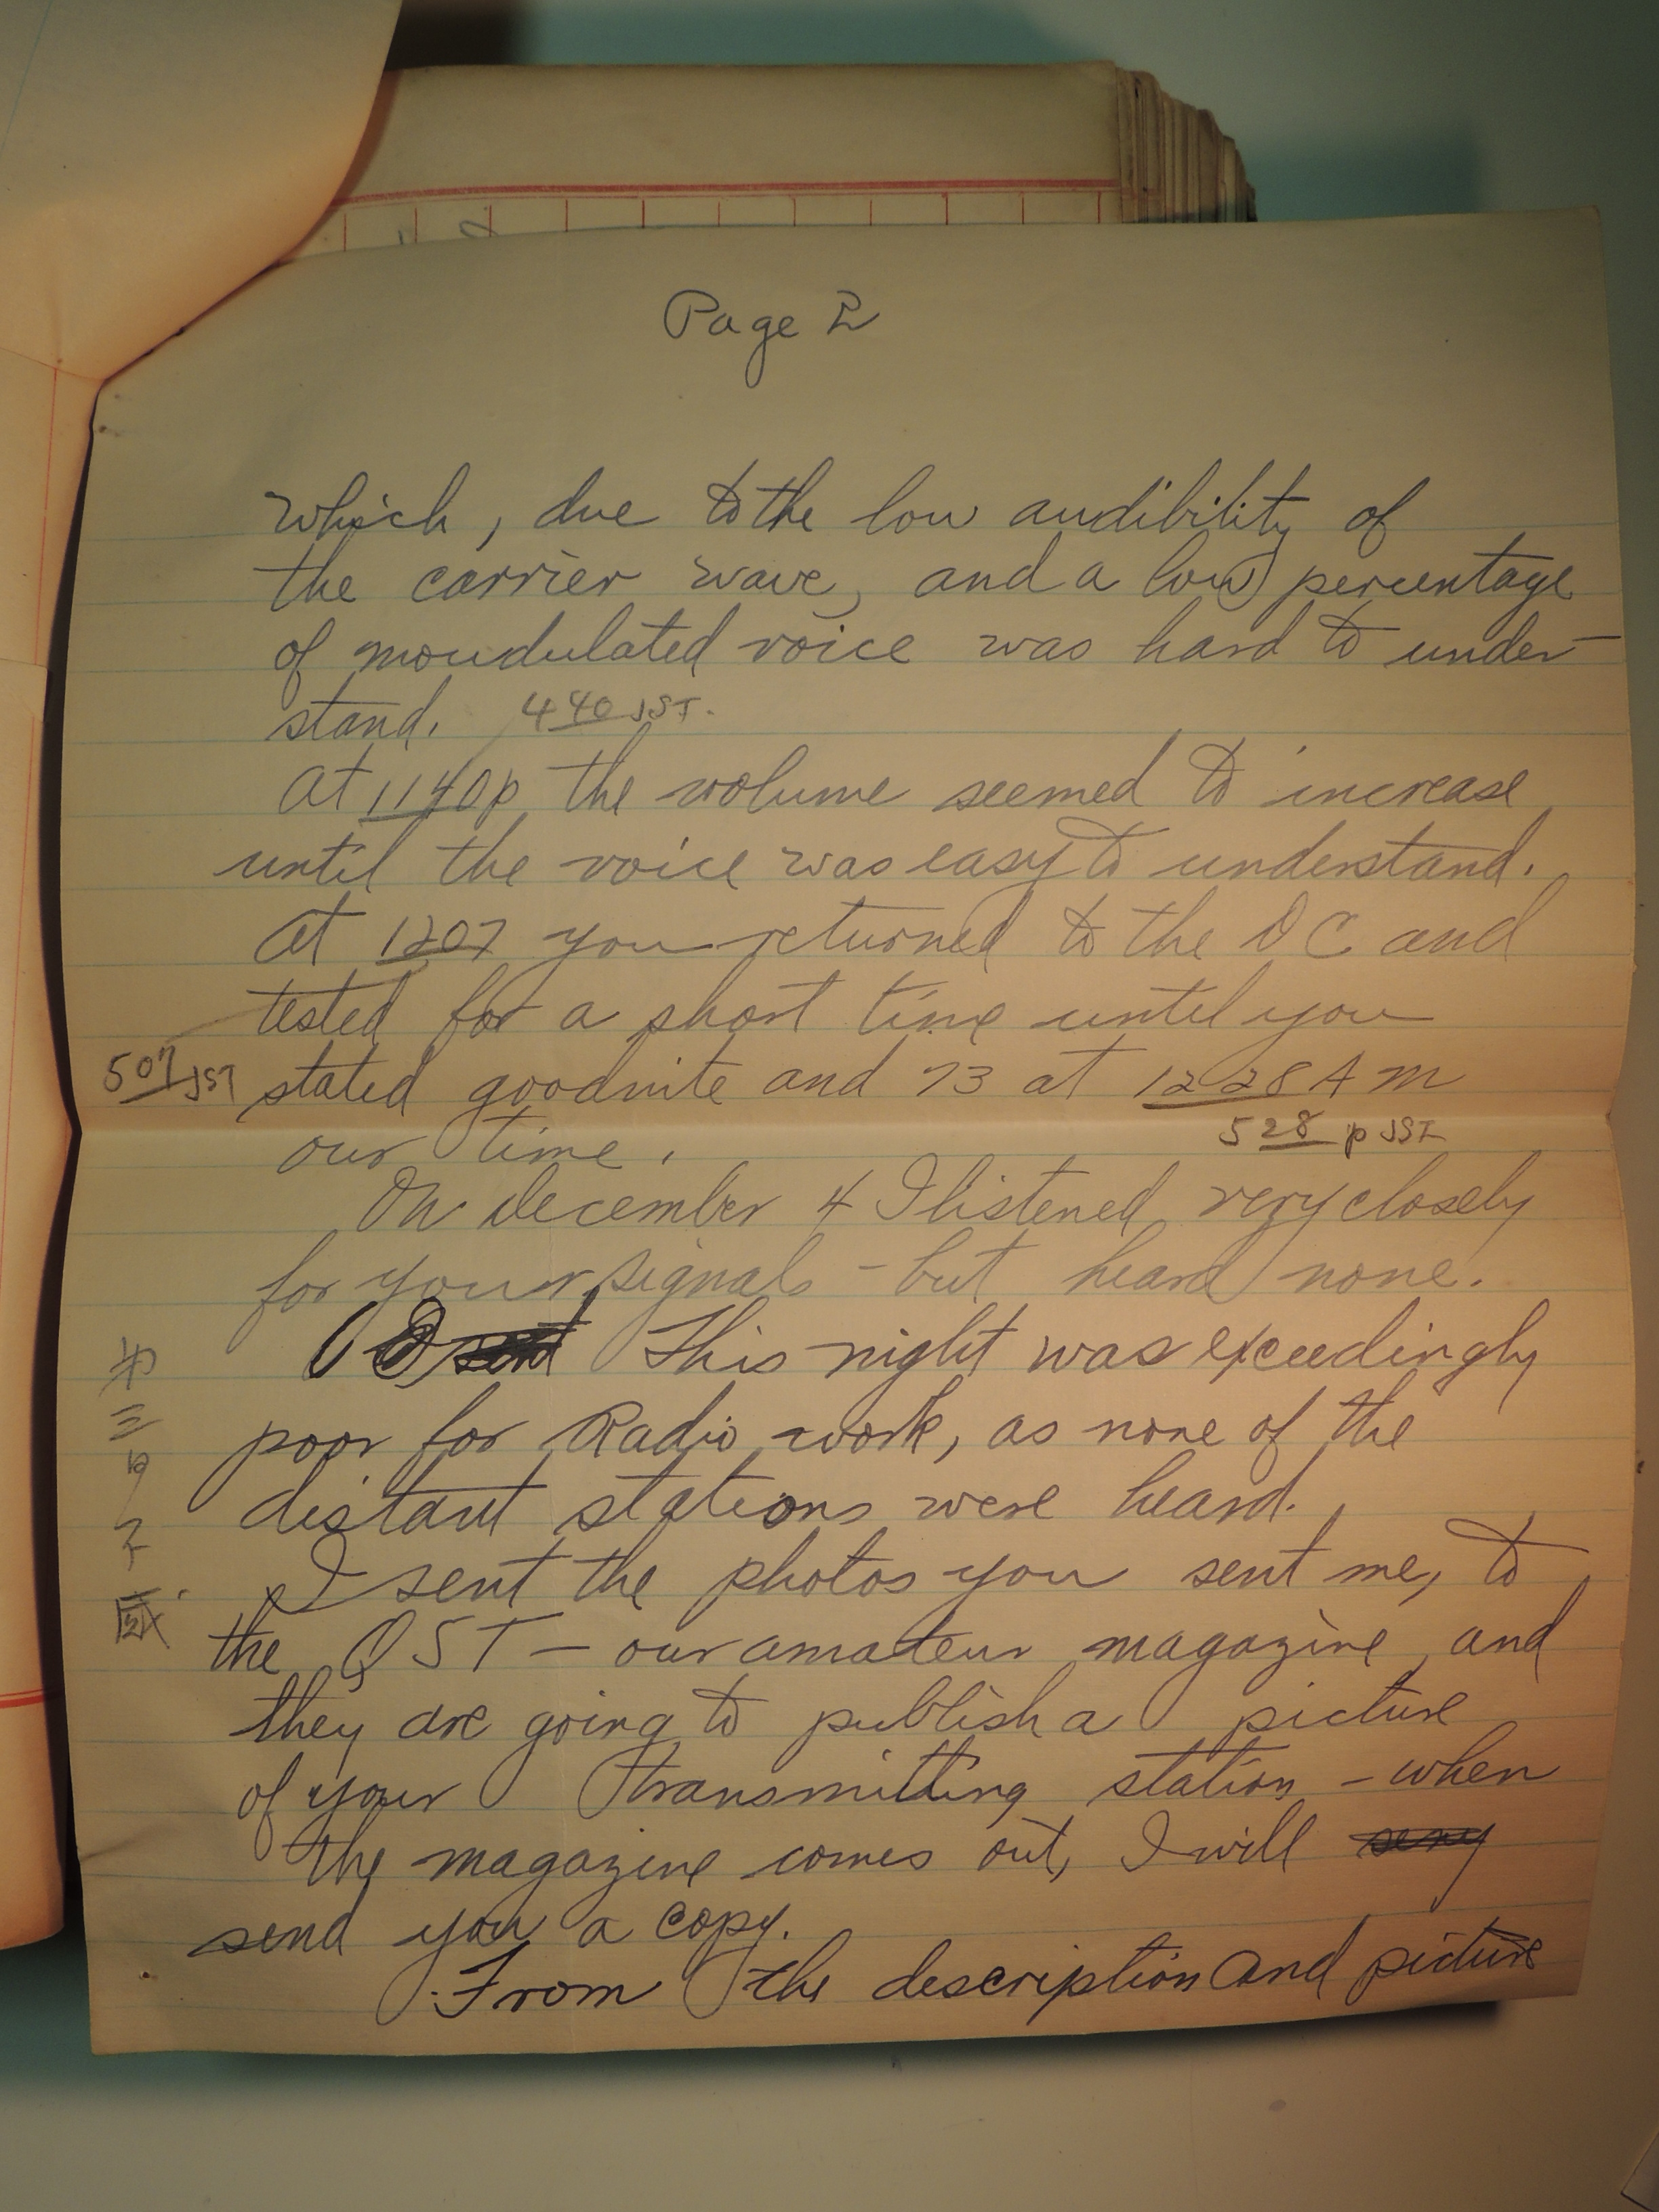 Page 2
which, due to the low audibility of
the carrier wave, and a low percentage
of moudulated voice was hard to under-
stand. 440 JST.
At 1140p the volume seemed to increase
until the voice was easy to understand.
At 1207 you returned to the DC and
tested for a short time until you
507 JST stated goodnite and 73 at 1228 AM
528 p JST
our time.
On December 4 I listened very closely
for your signals - but heard none.
This night was exceedingly
poor for Radio work, as none of the
distant stations were heard.
I sent the photos you sent me, to
the QST - our amateur magazine, and
they are going to publish a picture
of your transmitting station - when
the magazine comes out, I will
send you a copy.
From the description and picture